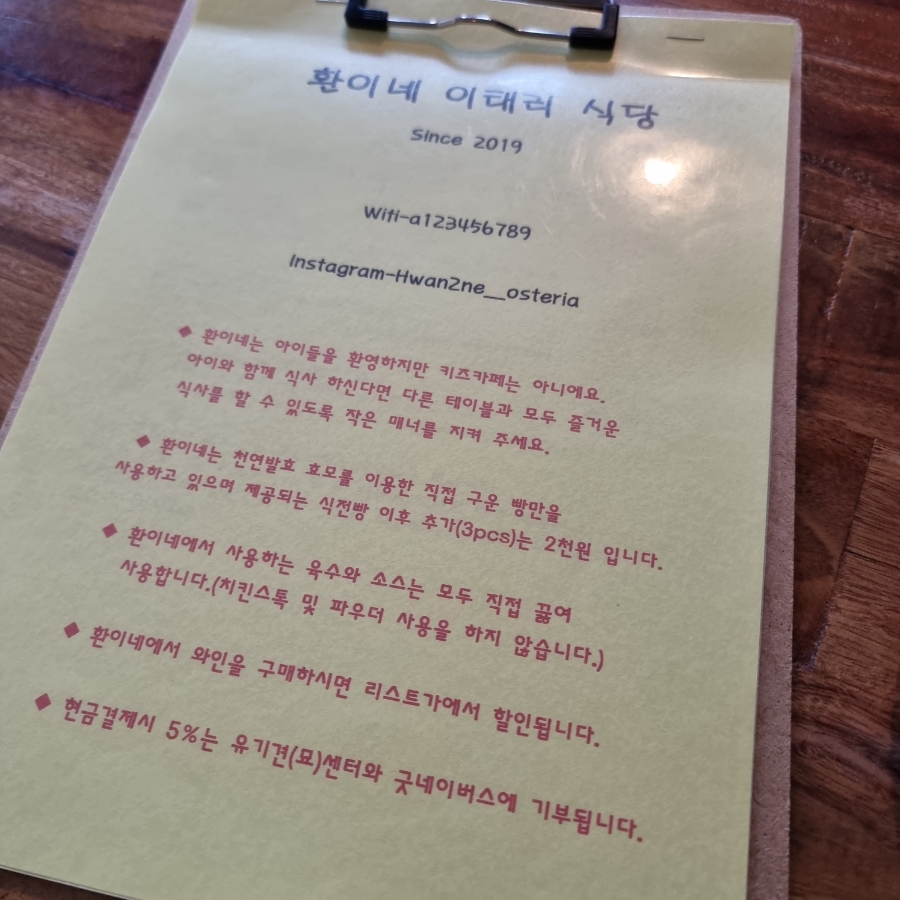 환이네 이태리 식당
Since 2019
Wifi-a123456789
Instagram-Hwan2ne__osteria
◆ 환이네는 아이들을 환영하지만 키즈카페는 아니에요.
아이와 함께 식사 하신다면 다른 테이블과 모두 즐거운
식사를 할 수 있도록 작은 매너를 지켜 주세요.
◆ 환이네는 천연발효 효모를 이용한 직접 구운 빵만을
사용하고 있으며 제공되는 식전빵 이후 추가(3pcs)는 2천원 입니다.
◆ 환이네에서 사용하는 육수와 소스는 모두 직접 끓여
사용합니다.(치킨스톡 및 파우더 사용을 하지 않습니다.)
◆ 환이네에서 와인을 구매하시면 리스트가에서 할인됩니다.
◆ 현금결제시 5%는 유기견(묘)센터와 굿네이버스에 기부됩니다.